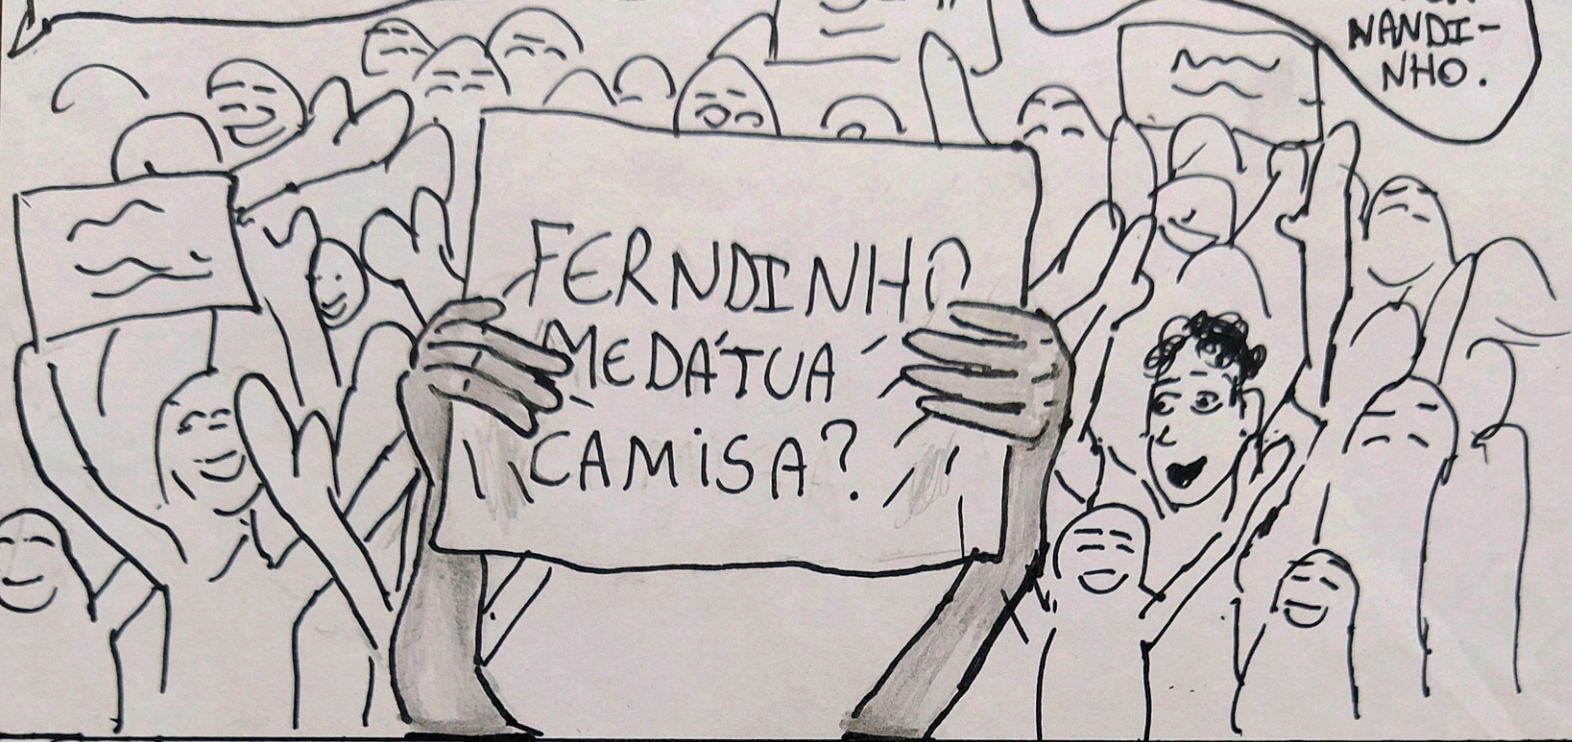 NANDI-
NHO.
FERNDINHO
ME DÁ TUA
CAMISA?